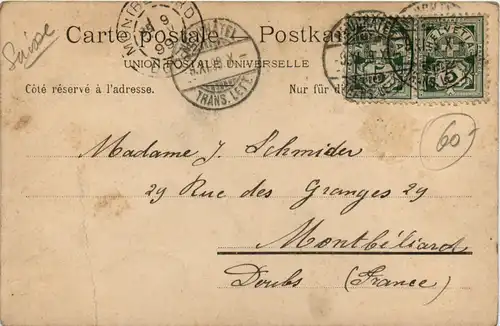 Suisse
Carte postale. Postkarte
UNION POSTALE UNIVERSELLE
Côté réservé à l'adresse. Nur für
NEUCHATEL
5. XI. 99. X-
TRANS. LETT.
HELVETIA
5
60
Madame J. Schmider
29 Rue des Granges 29
Montbéliard
Doubs (France)